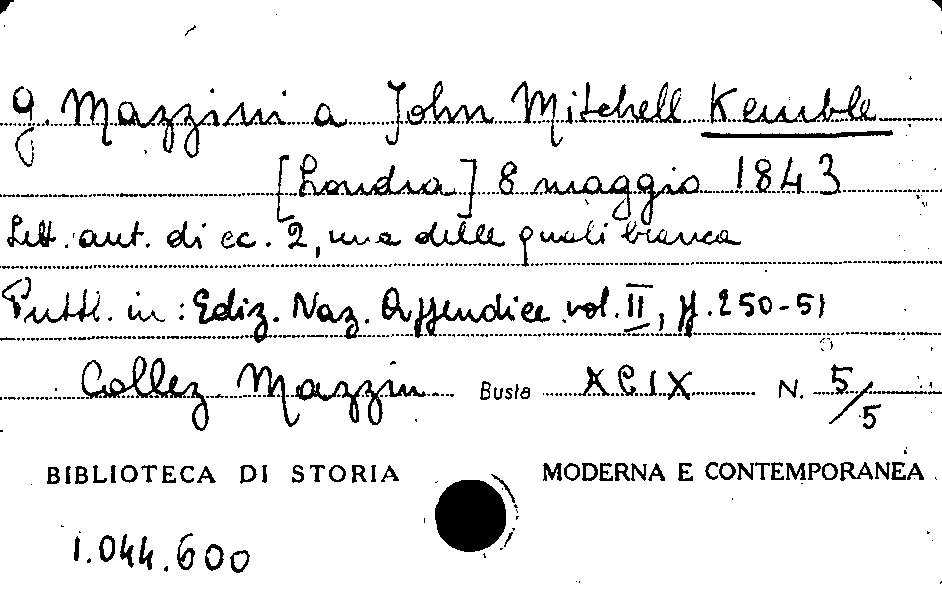 G. Mazzini a John Mitchell Kemble
[Londra] 8 maggio 1843
Lett. aut. di cc. 2, una delle quali bianca
Pubbl. in: Ediz. Naz. Appendice vol. II, pp. 250-51
Collez Mazzini Busta XCIX N. 5/5
BIBLIOTECA DI STORIA MODERNA E CONTEMPORANEA
1.044.600